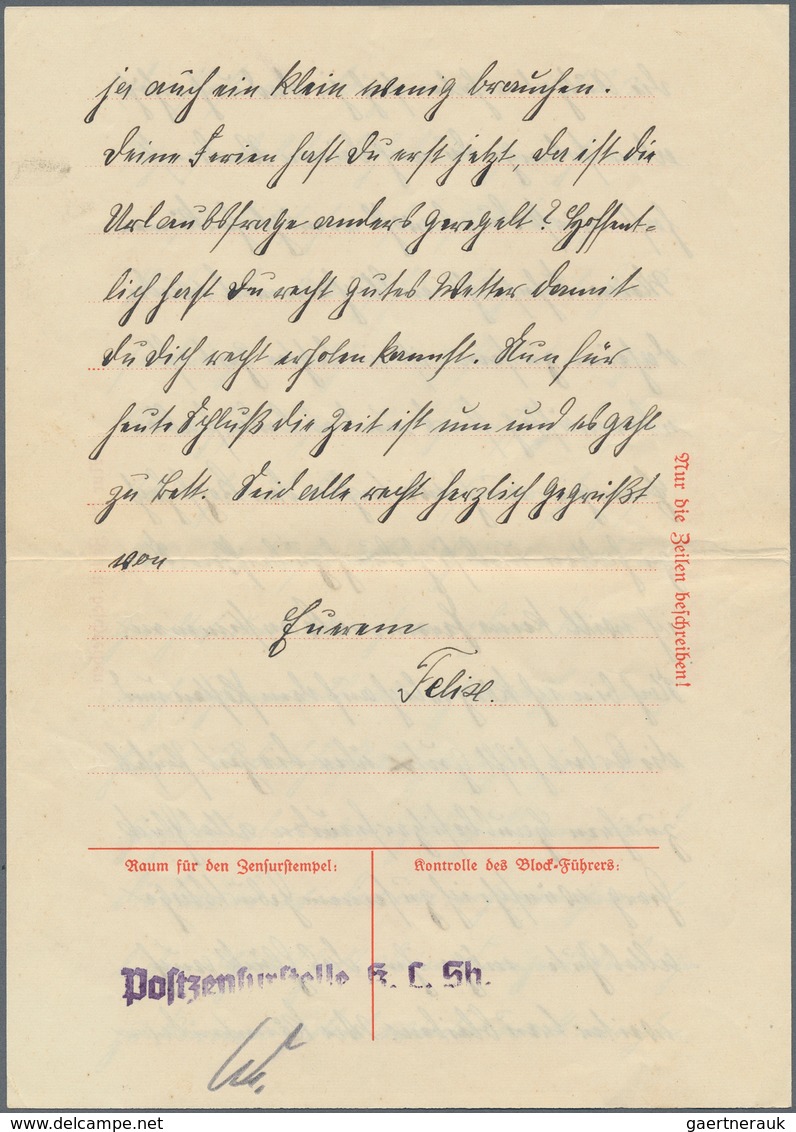 ja auch ein klein wenig brauchen.
Deine Ferien hast Du erst jetzt, da ist die
Urlaubsfrage anders geregelt? Hoffent-
lich hast Du recht gutes Wetter damit
Du Dich recht erholen kannst. Nun für
heute Schluß die Zeit ist um und es geht
zu Bett. Seid alle recht herzlich gegrüßt
von
Euerem
Felix.
Nur die Zeilen beschreiben!
Raum für den Zensurstempel:
Kontrolle des Block-Führers:
Postzensurstelle K. L. Sh.
gaertnerauk